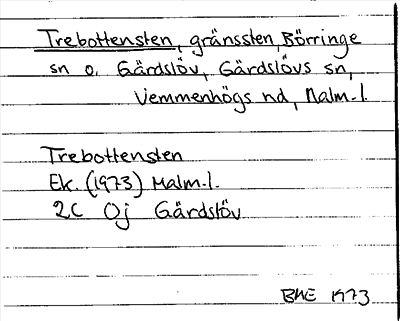 Trebottensten, gränssten, Börringe
sn o. Gärdslöv, Gärdslövs sn,
Vemmenhögs hd, Malm.l.
Trebottensten
Ek. (1973) Malm.l.
2C 0j Gärdslöv
BHE 1973